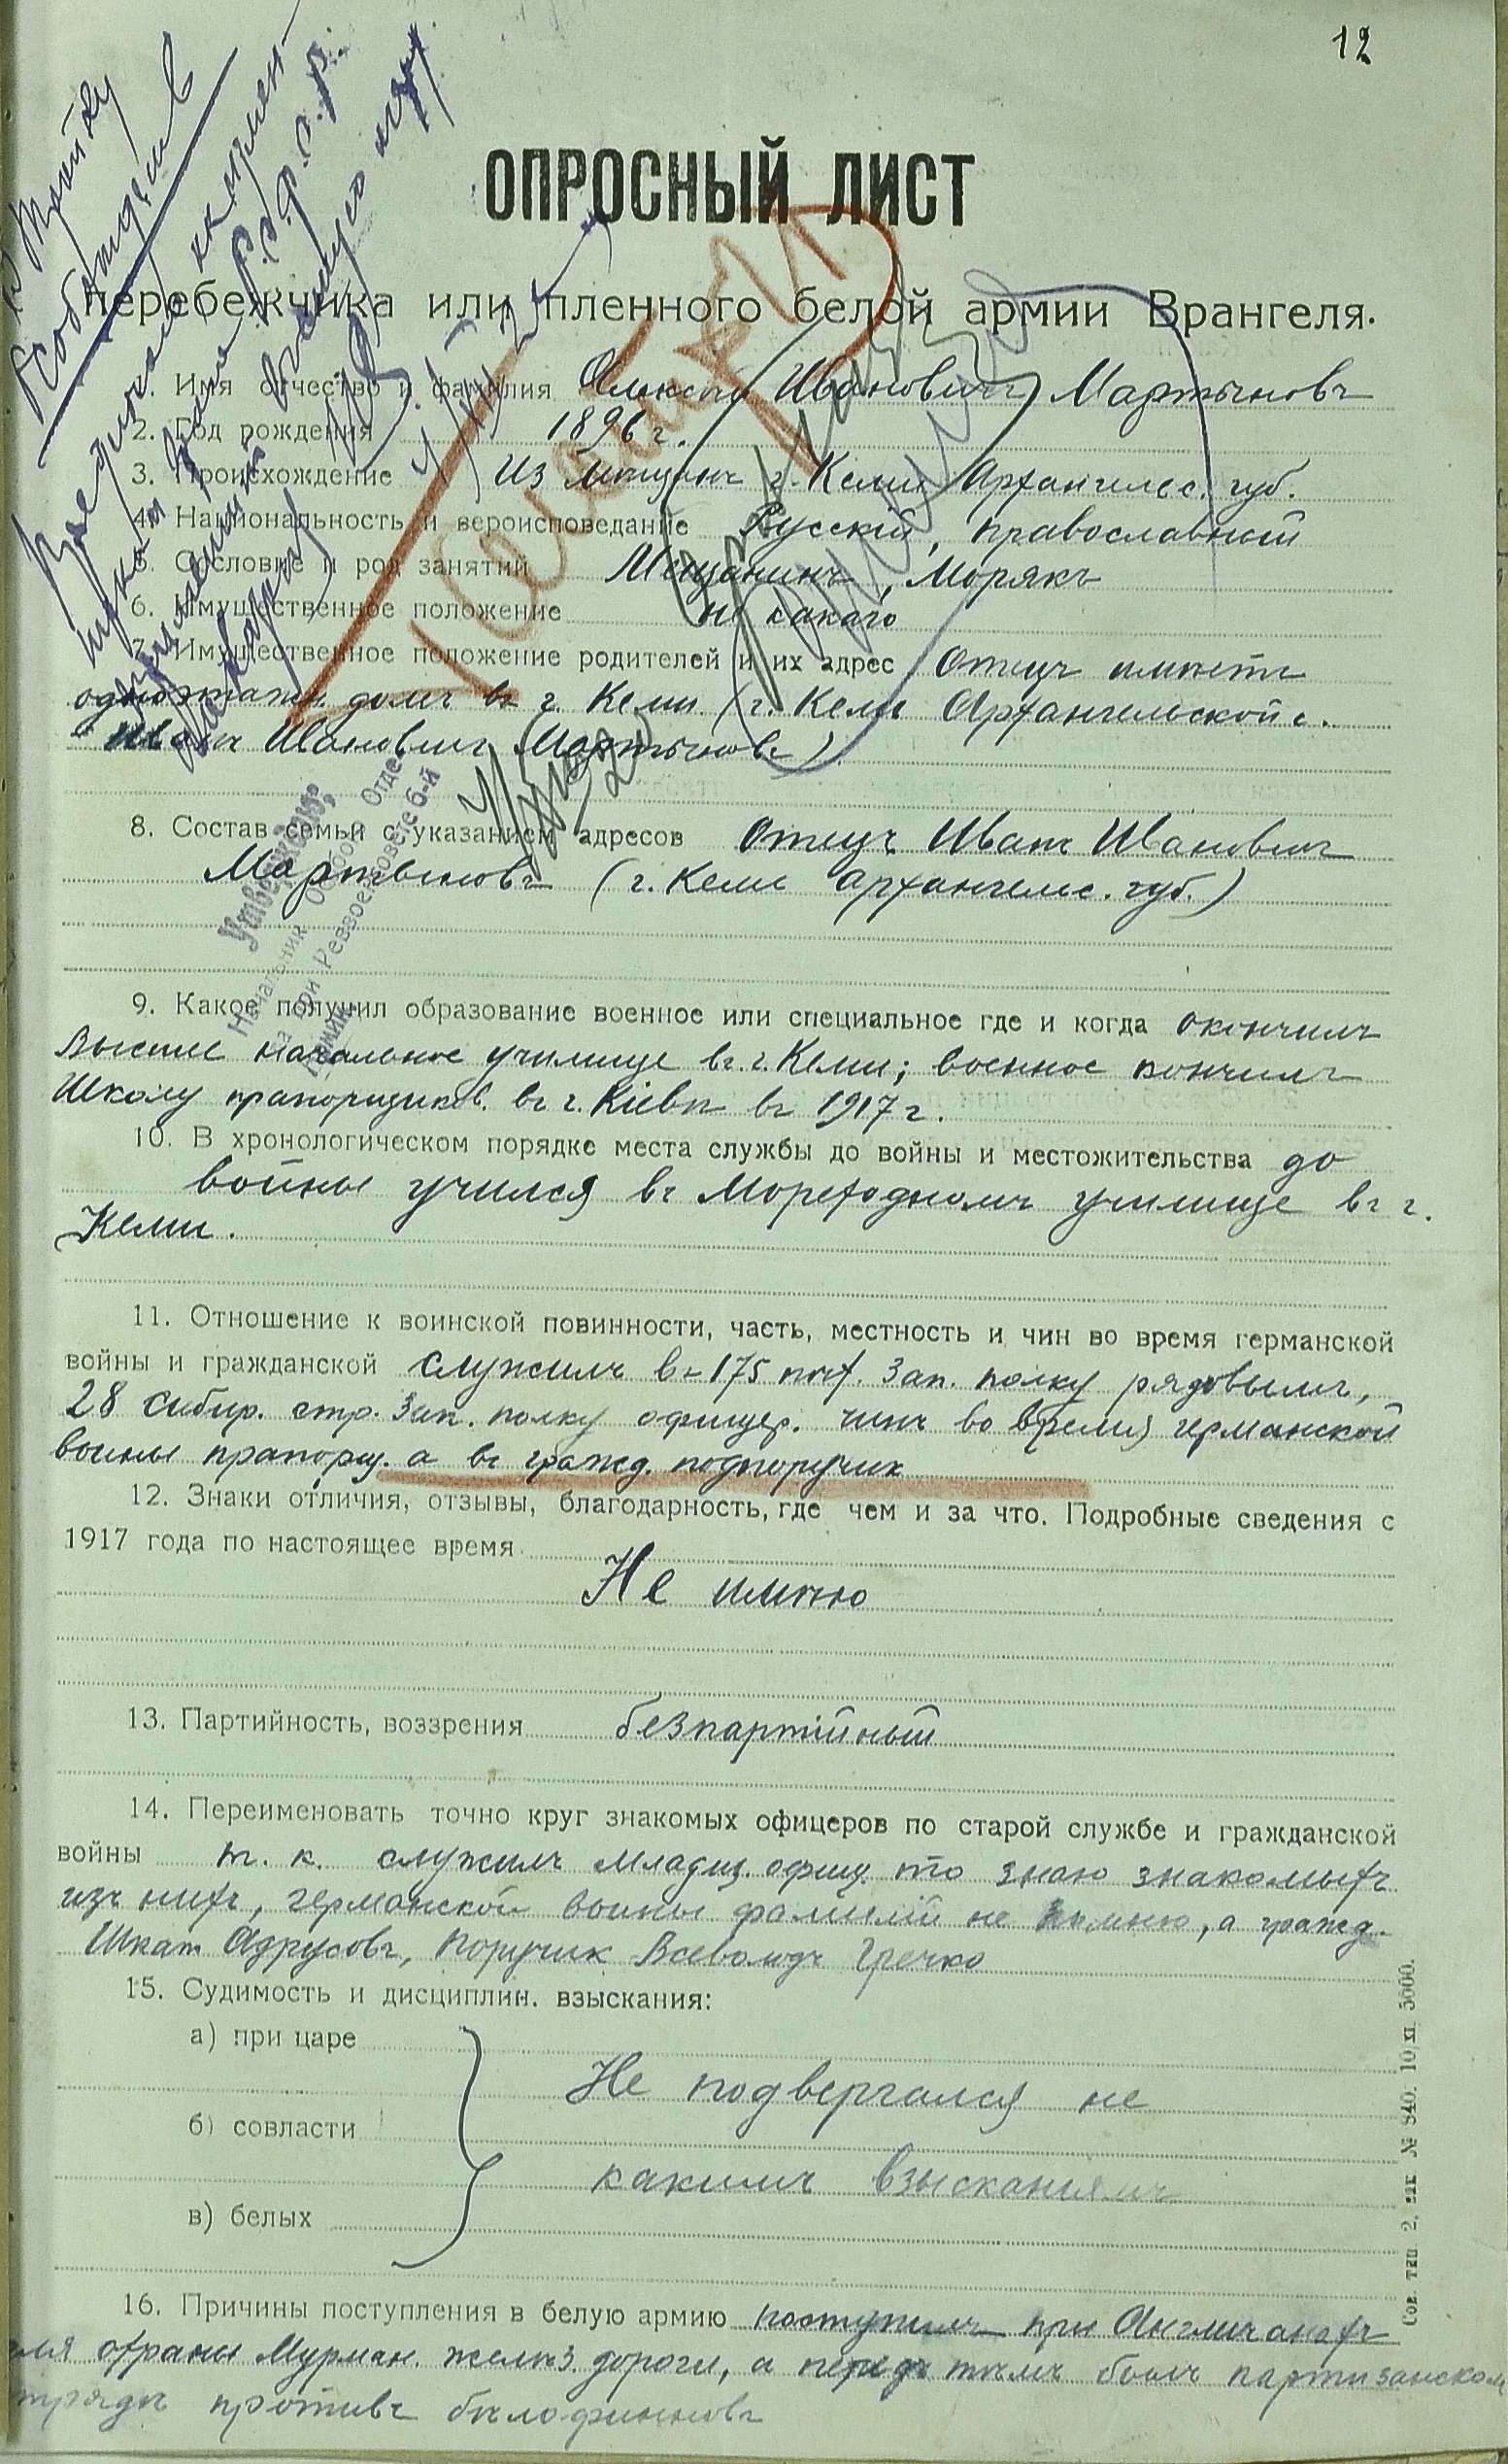 12
ОПРОСНЫЙ ЛИСТ
перебежчика или пленного белой армии Врангеля.
1. Имя отчество и фамилия Алексѣй Ивановичъ Мартыновъ
2. Год рождения 1896 г.
3. Происхождение Из мѣщанъ г. Кеми Архангельс. губ.
4. Национальность и вероисповедание Русскій, православный
5. Сословие и род занятий Мѣщанинъ, Морякъ
6. Имущественное положение ни какого
7. Имущественное положение родителей и их адрес Отецъ имѣетъ
одноэтажн. домъ въ г. Кеми (г. Кемь Архангельской г.
Иванъ Ивановичъ Мартыновъ)
8. Состав семьи с указанием адресов Отецъ Иванъ Ивановичъ
Мартыновъ (г. Кемь Архангельс. губ.)
9. Какое получил образование военное или специальное где и когда окончилъ
Высшее начальное училище въ г. Кеми; военное кончилъ
Школу прапорщиков. въ г. Кіевѣ въ 1917 г.
10. В хронологическом порядке места службы до войны и местожительства до
войны учился въ Мореходномъ училище въ г.
Кеми.
11. Отношение к воинской повинности, часть, местность и чин во время германской
войны и гражданской служилъ въ 175 пѣх. зап. полку рядовымъ,
28 сибир. стр. зап. полку офицер. чинъ во время германской
войны прапорщ. а въ гражд. подпоручик
12. Знаки отличия, отзывы, благодарность, где чем и за что. Подробные сведения с
1917 года по настоящее время
Не имѣю
13. Партийность, воззрения безпартійный
14. Переименовать точно круг знакомых офицеров по старой службе и гражданской
войны т. к. служилъ младш. офиц. то знаю знакомыхъ
изъ нихъ, германской войны фамилій не помню, а гражд.
Шкап Адрусовъ, Поручик Всеволодъ Гречко
15. Судимость и дисциплин. взыскания:
а) при царе
Не подвергался не
б) совласти
какимъ взысканіямъ
в) белых
16. Причины поступления в белую армию поступилъ при Англичанахъ
для охраны Мурман. желѣз. дороги, а передъ тѣмъ былъ партизанском
отрядѣ противъ бѣлофинновъ
Утверждаю:
Начальник Особого Отде
ла при Реввоенсовете 6-й
Армии
Сов. тип. 2, зак. № 840. 10/XI. 5000.